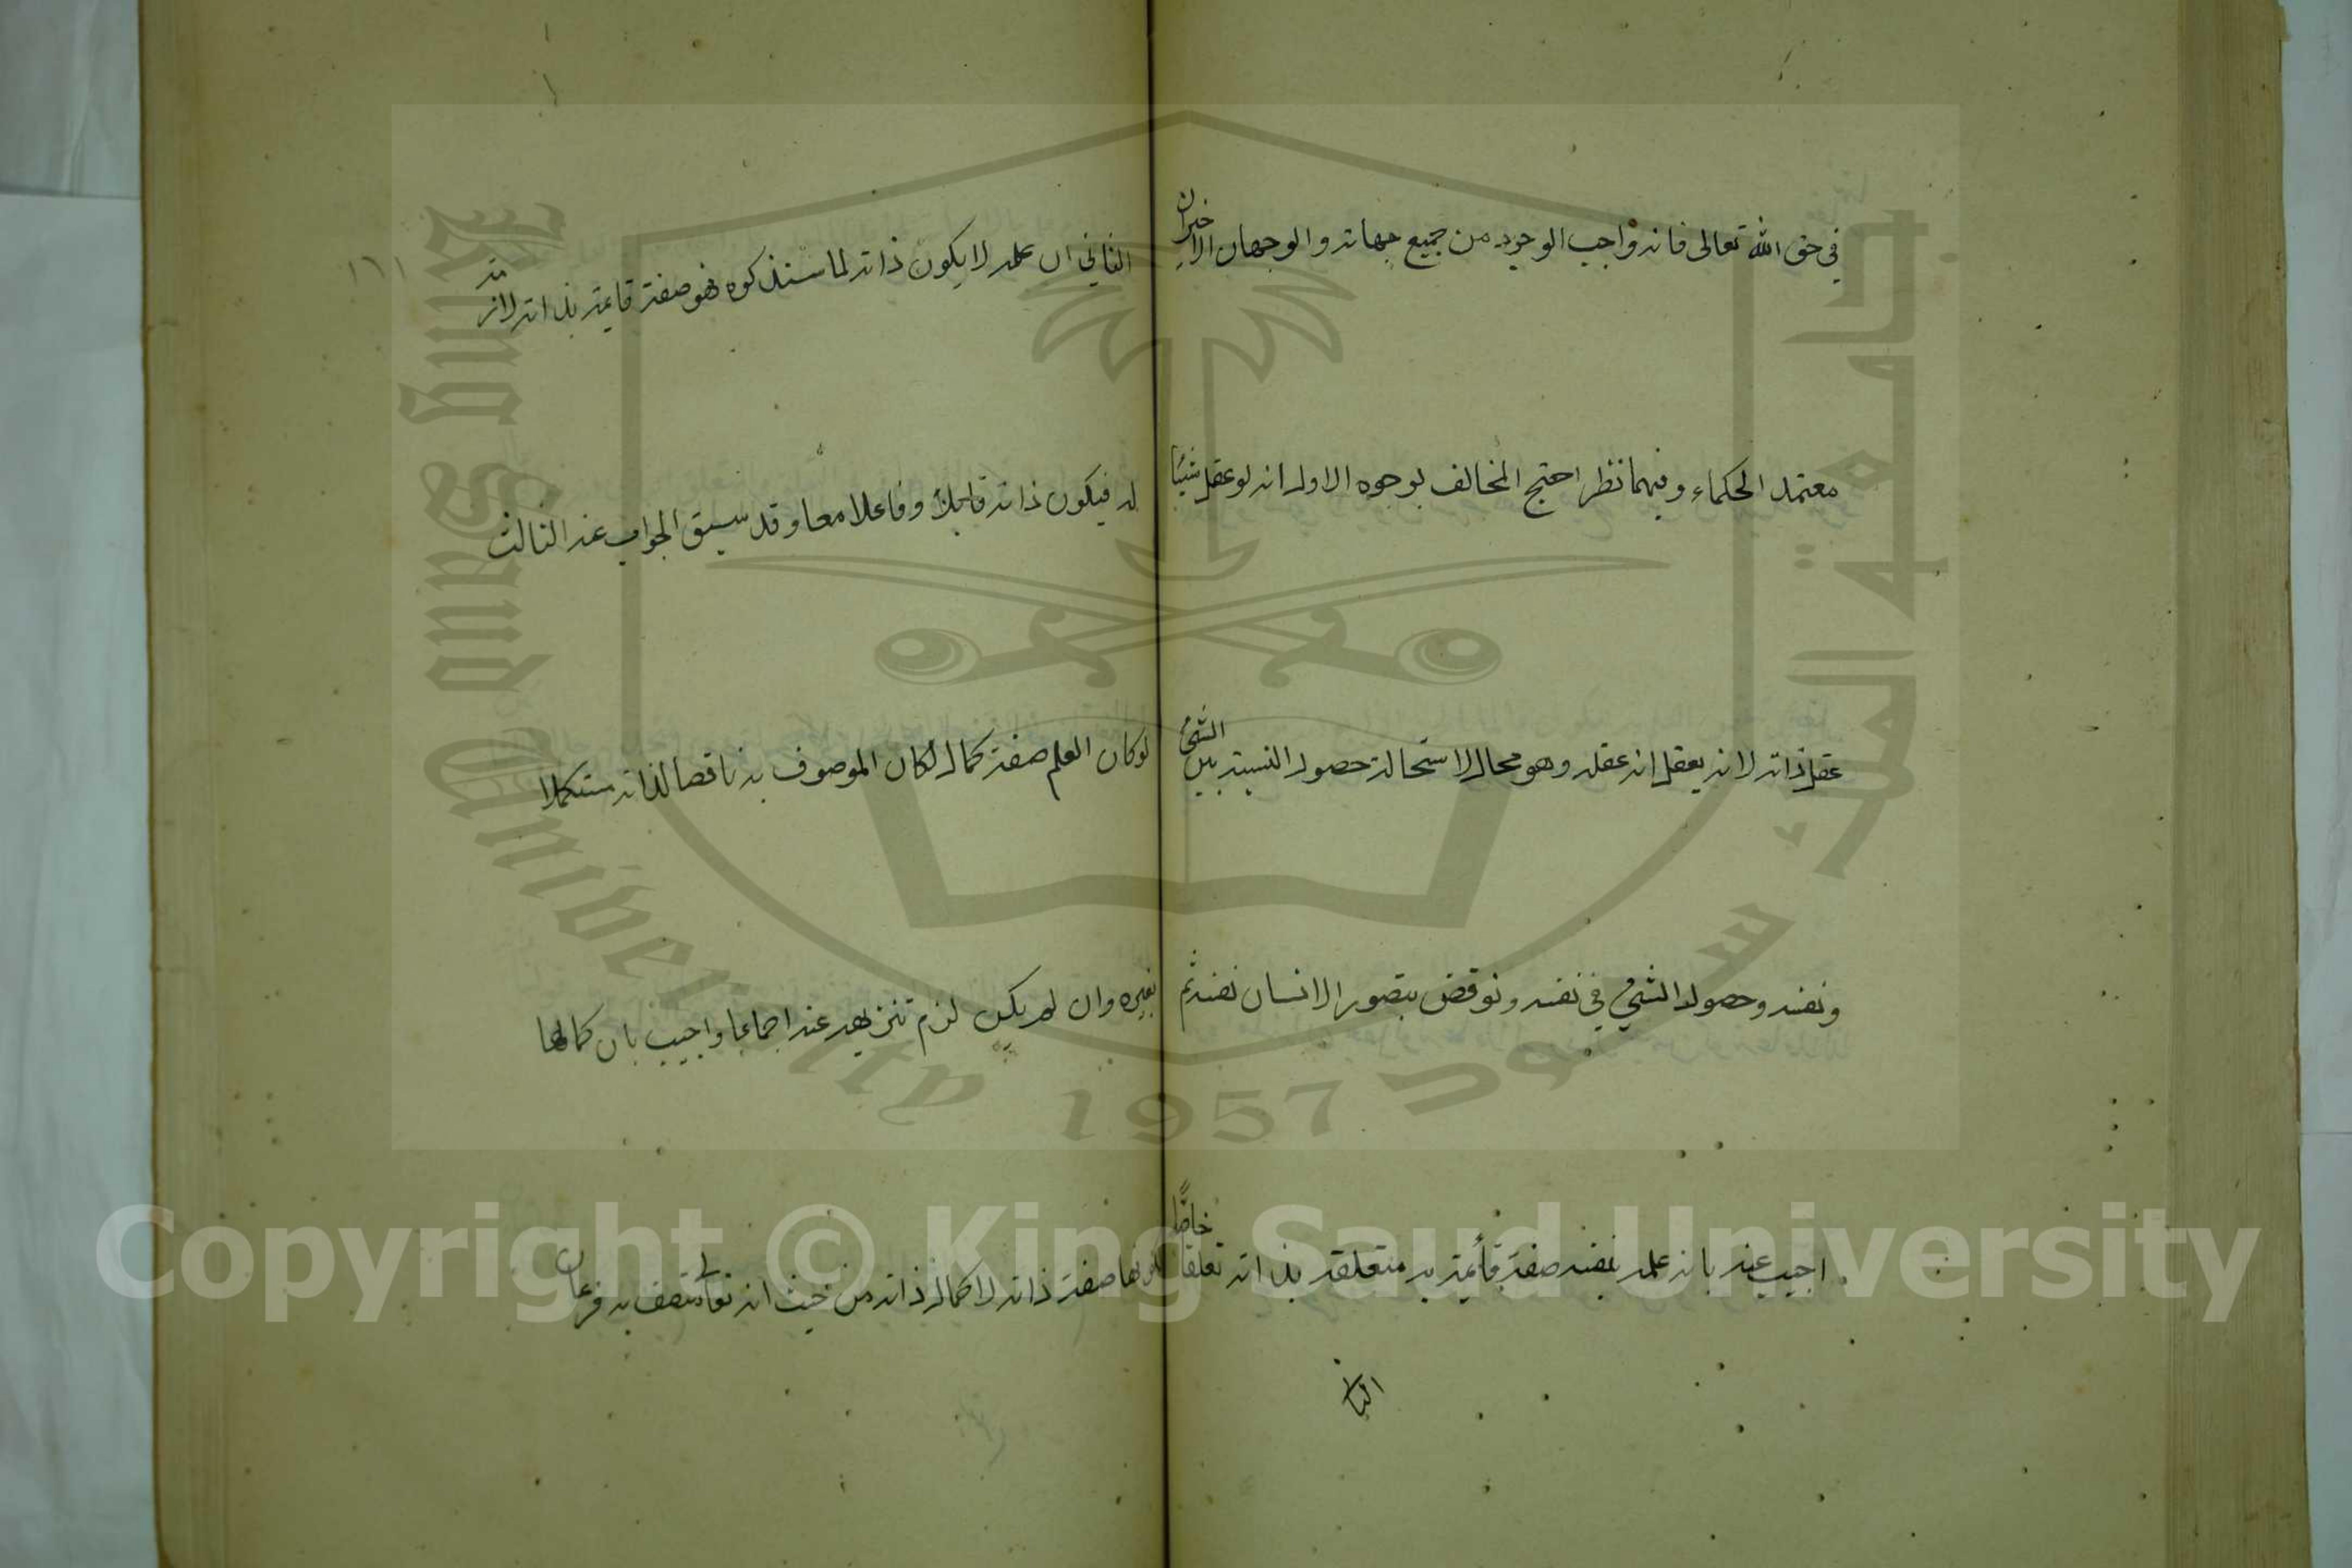 في حق الله تعالى فانه واجب الوجود من جميع جهاته والوجهان الاخيران
معتمد الحكماء وفيهما نظر احتج المخالف بوجوه الاول انه لو عقل شيئا
عقل ذاته لانه يعقل انه عقله وهو محال لاستحالة حصول النسبة بين الشئ
ونفسه وحصول الشئ في نفسه ونوقض بتصور الانسان نفسه ثم
اجيب عنه بان علمه بنفسه صفة قائمة به متعلقة بذاته تعلقا خاصًّا
الثاني
الثاني ان علمه لا يكون ذاته لما سنذكره فهو صفة قايمة بذاته لازمة
له فيكون ذاته قابلا وفاعلا معا وقد سبق الجواب عنه الثالث
لو كان العلم صفة كمال لكان الموصوف به ناقصا لذاته مستكملا
بغيره وان لم يكن لزم تنزيهه عنه اجماعا واجيب بان كمالها
لكونها صفة ذاته لا كمال ذاته من حيث انه تعالى متصف به فرعان
١٦١
King Saud University
1957
جامعة الملك سعود
Copyright © King Saud University